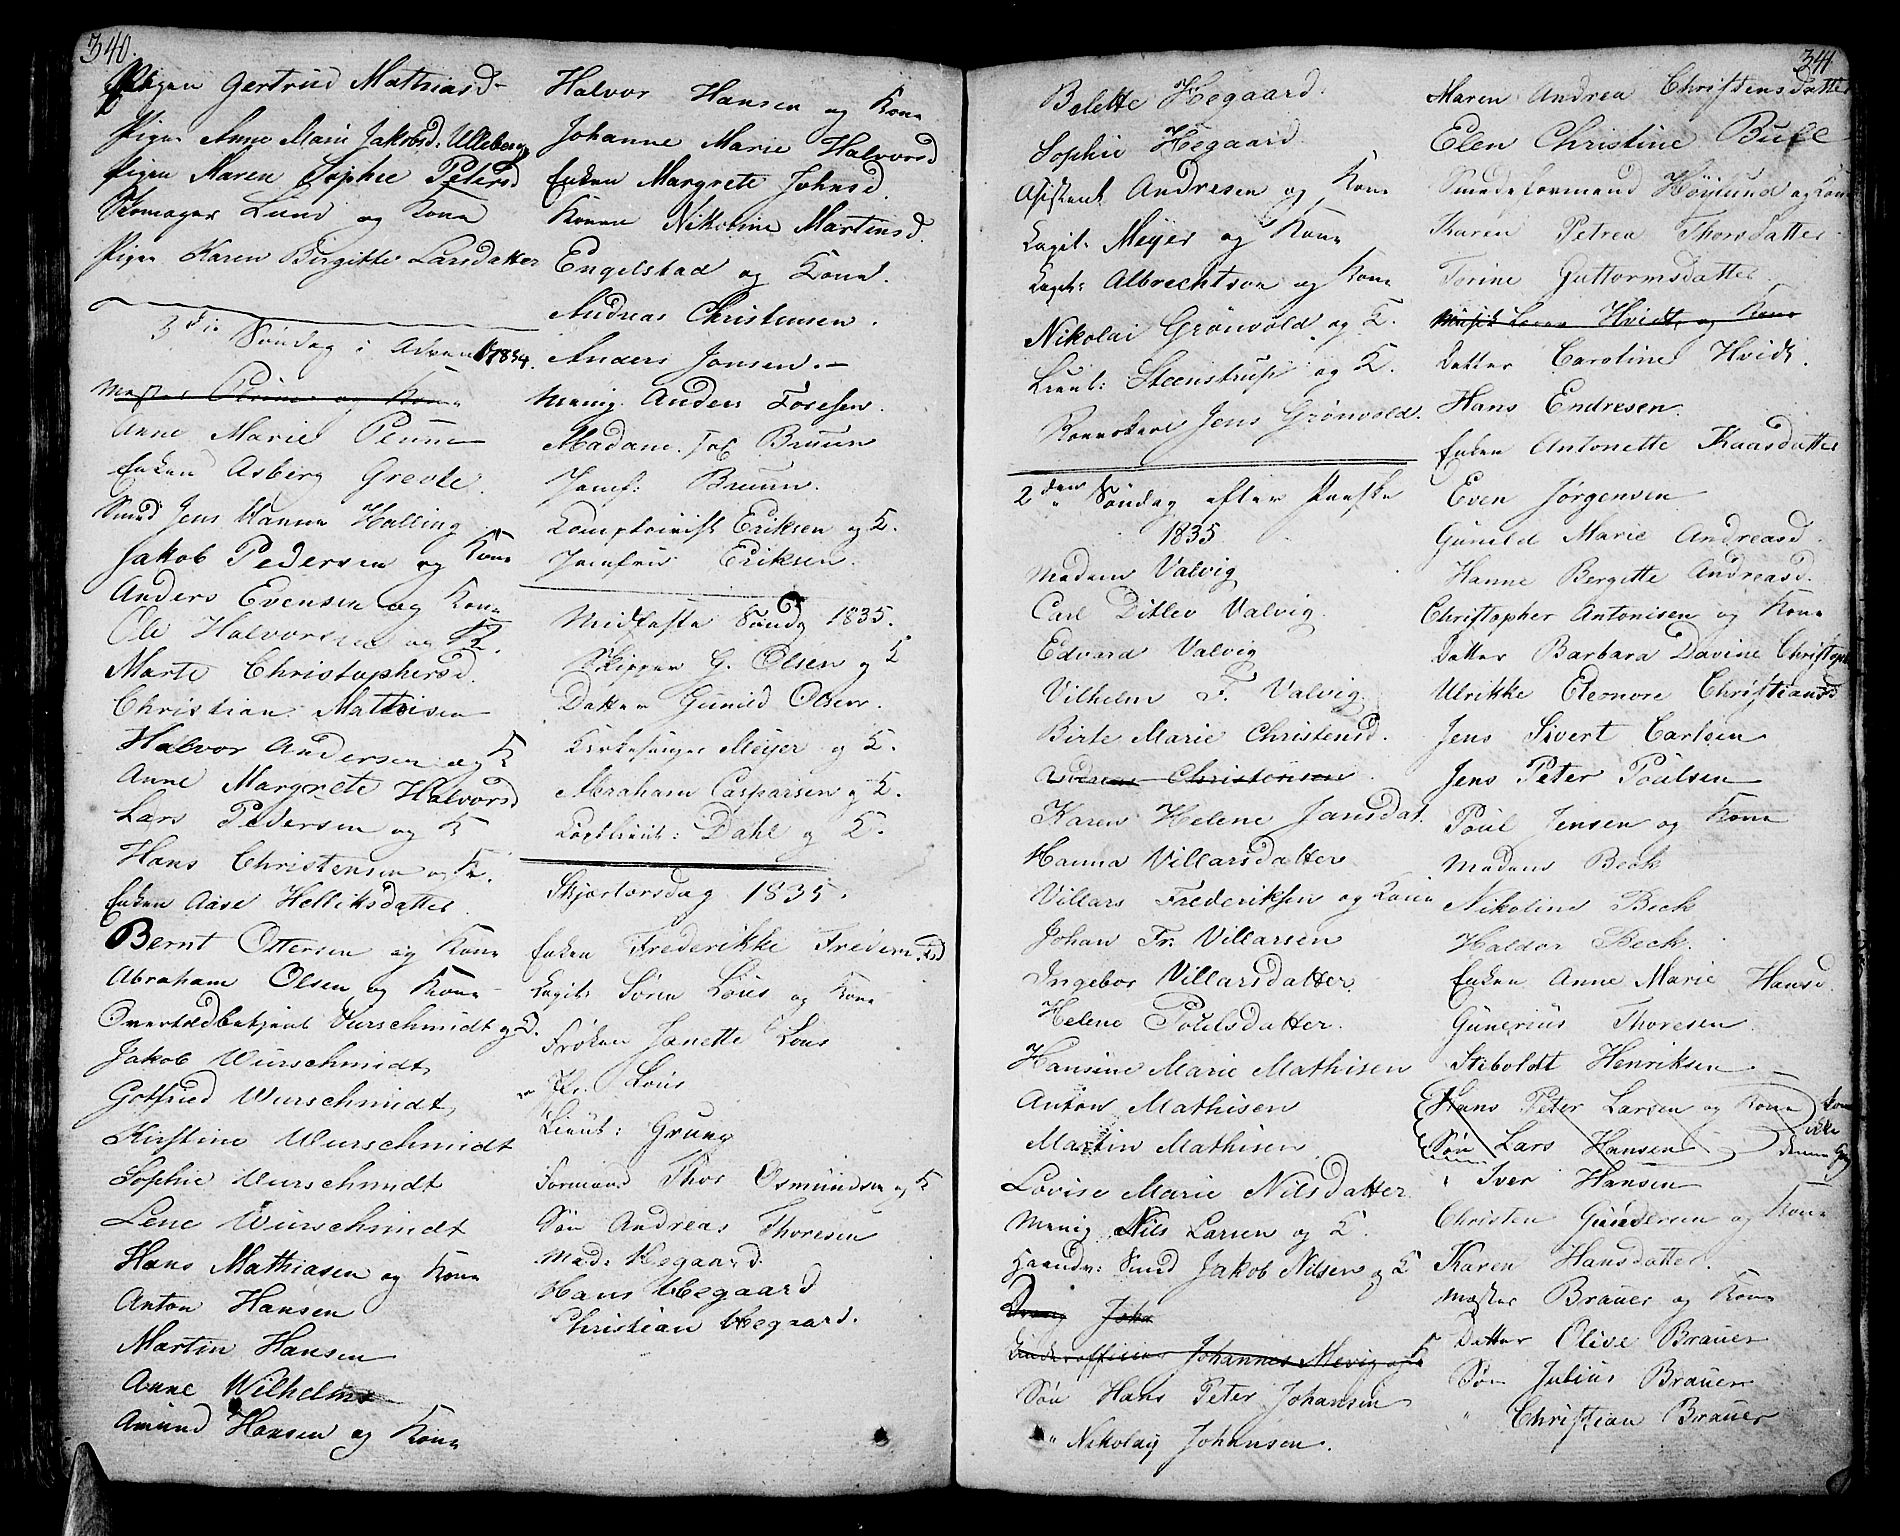 340.
Pigen Gertrud Mathiasd
Pigen Anne Marie Jakobsd. Ulleberg
Pigen Maren Sophie Petersd
Skomager Lund og Kone
Pigen Karen Birgitte Larsdatter
3die Søndag i Advent 1834.
Mester og Kone
Anne Marie Penne
Enken Asberg Grevle.
Smed Jens Hanna Halling
Jakob Pedersen og Kone
Anders Evensen og Kone
Ole Halvorsen og K.
Marte Christophersd.
Christian Mathisen
Halvor Andersen og K
Anne Margrete Halvorsd
Lars Pedersen og K
Hans Christensen og K.
Enken Aase Helliksdatter
Bernt Ottersen og Kone
Abraham Olsen og Kone
Wurschmidt og D.
Jakob Wurschmidt
Gotfried Wurschmidt
Kirstine Wurschmidt
Sophie Wurschmidt
Lene Wurschmidt
Hans Mathiasen og Kone
Anton Hansen
Martin Hansen
Anne Wilhelms
Amund Hansen og Kone
Halvor Hansen og Kone
Johanne Marie Halvorsd
Enken Margrete Johnsd.
Konen Nikoline Martinsd.
Engelstad og Kone.
Andreas Christensen.
Anders Jonsen.
Menig. Anders Foresen.
Madame Bruun
Jomf: Bruun.
Comptoirist Eriksen og K.
Jomfru Eriksen.
Midfaste Søndg 1835.
Skipper G. Olsen og K
Datter Gunild Olsen.
Kirkesanger Meyer og K.
Abraham Casparsen og K.
Captlieut: Dahl og K.
Skjærtorsdag 1835.
Enken Frederikke Frederiksd
Capit: Søren Lous og Kone
Frøken Janette Lous
Fr. Lous
Lieut: Grung
Formand Thor Osmundsen og K
Søn Andreas Thoresen
Mad: Hegaard.
Hans Hegaard
Christian Hegaard.
341.
Bolette Hegaard.
Sophie Hegaard.
Assistent Andresen og Kone
Capit: Meyer og Kone
Capit: Albrechtson og Kone
Nikolai Grønvold og K.
Lieut: Steenstrup og K.
Jens Grønvold.
2den Søndag efter Paaske
1835
Madam Valvig
Carl Ditlev Valvig.
Edvard Valvig
Vilhelm F. Valvig
Birte Marie Christensd.
Andreas Christensen.
Karen Helene Jansdat.
Hanna Villarsdatter
Villars Frederiksen og Kone
Johan Fr: Villarsen
Ingebor Villarsdatter.
Helene Poulsdatter.
Hansine Marie Mathisen
Anton Mathisen
Martin Mathisen
Lovise Marie Nilsdatter
Menig Nils Larsen og K.
Haandv: Smed Jakob Nilsen og K
Dreng
Underofficer Johannes Mevig og K
Søn Hans Peter Johansen
" Nikolay Johansen.
Maren Andrea Christensdatter
Elen Christine Bull
Smedeformand Høylund og Kone
Karen Petrea Thorsdatter
Torine Guttormsdatter
Musik Hvidt og Kone
Datter Caroline Hvidt.
Hans Endresen.
Enken Antonette Kaasdatter
Even Jørgensen
Gunild Marie Andreasd.
Hanne Bergitte Andreasd.
Christopher Antonisen og Kone
Datter Barbara Davine Christoph
Ulrikke Eleonore Christiansd
Jens Sivert Carlsen
Jens Peter Poulsen
Poul Jensen og Kone
Madam Beck
Nikoline Beck
Haldor Beck.
Enken Anne Marie Hansd.
Gunerius Thoresen.
Stiboldt Henriksen
Hans Peter Larsen og Kone kom
ikke
Søn Lars Hansen denne Gang
" Iver Hansen
Christen Gundersen og Kone
Karen Hansdatter.
Mester Brauer og Kone
Datter Olive Brauer
Søn Julius Brauer
" Christian Brauer